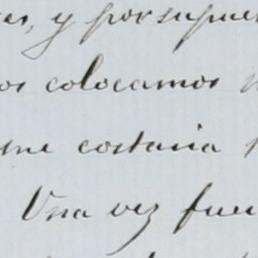 y por supues
colocamos
me costaria
Una vez fue